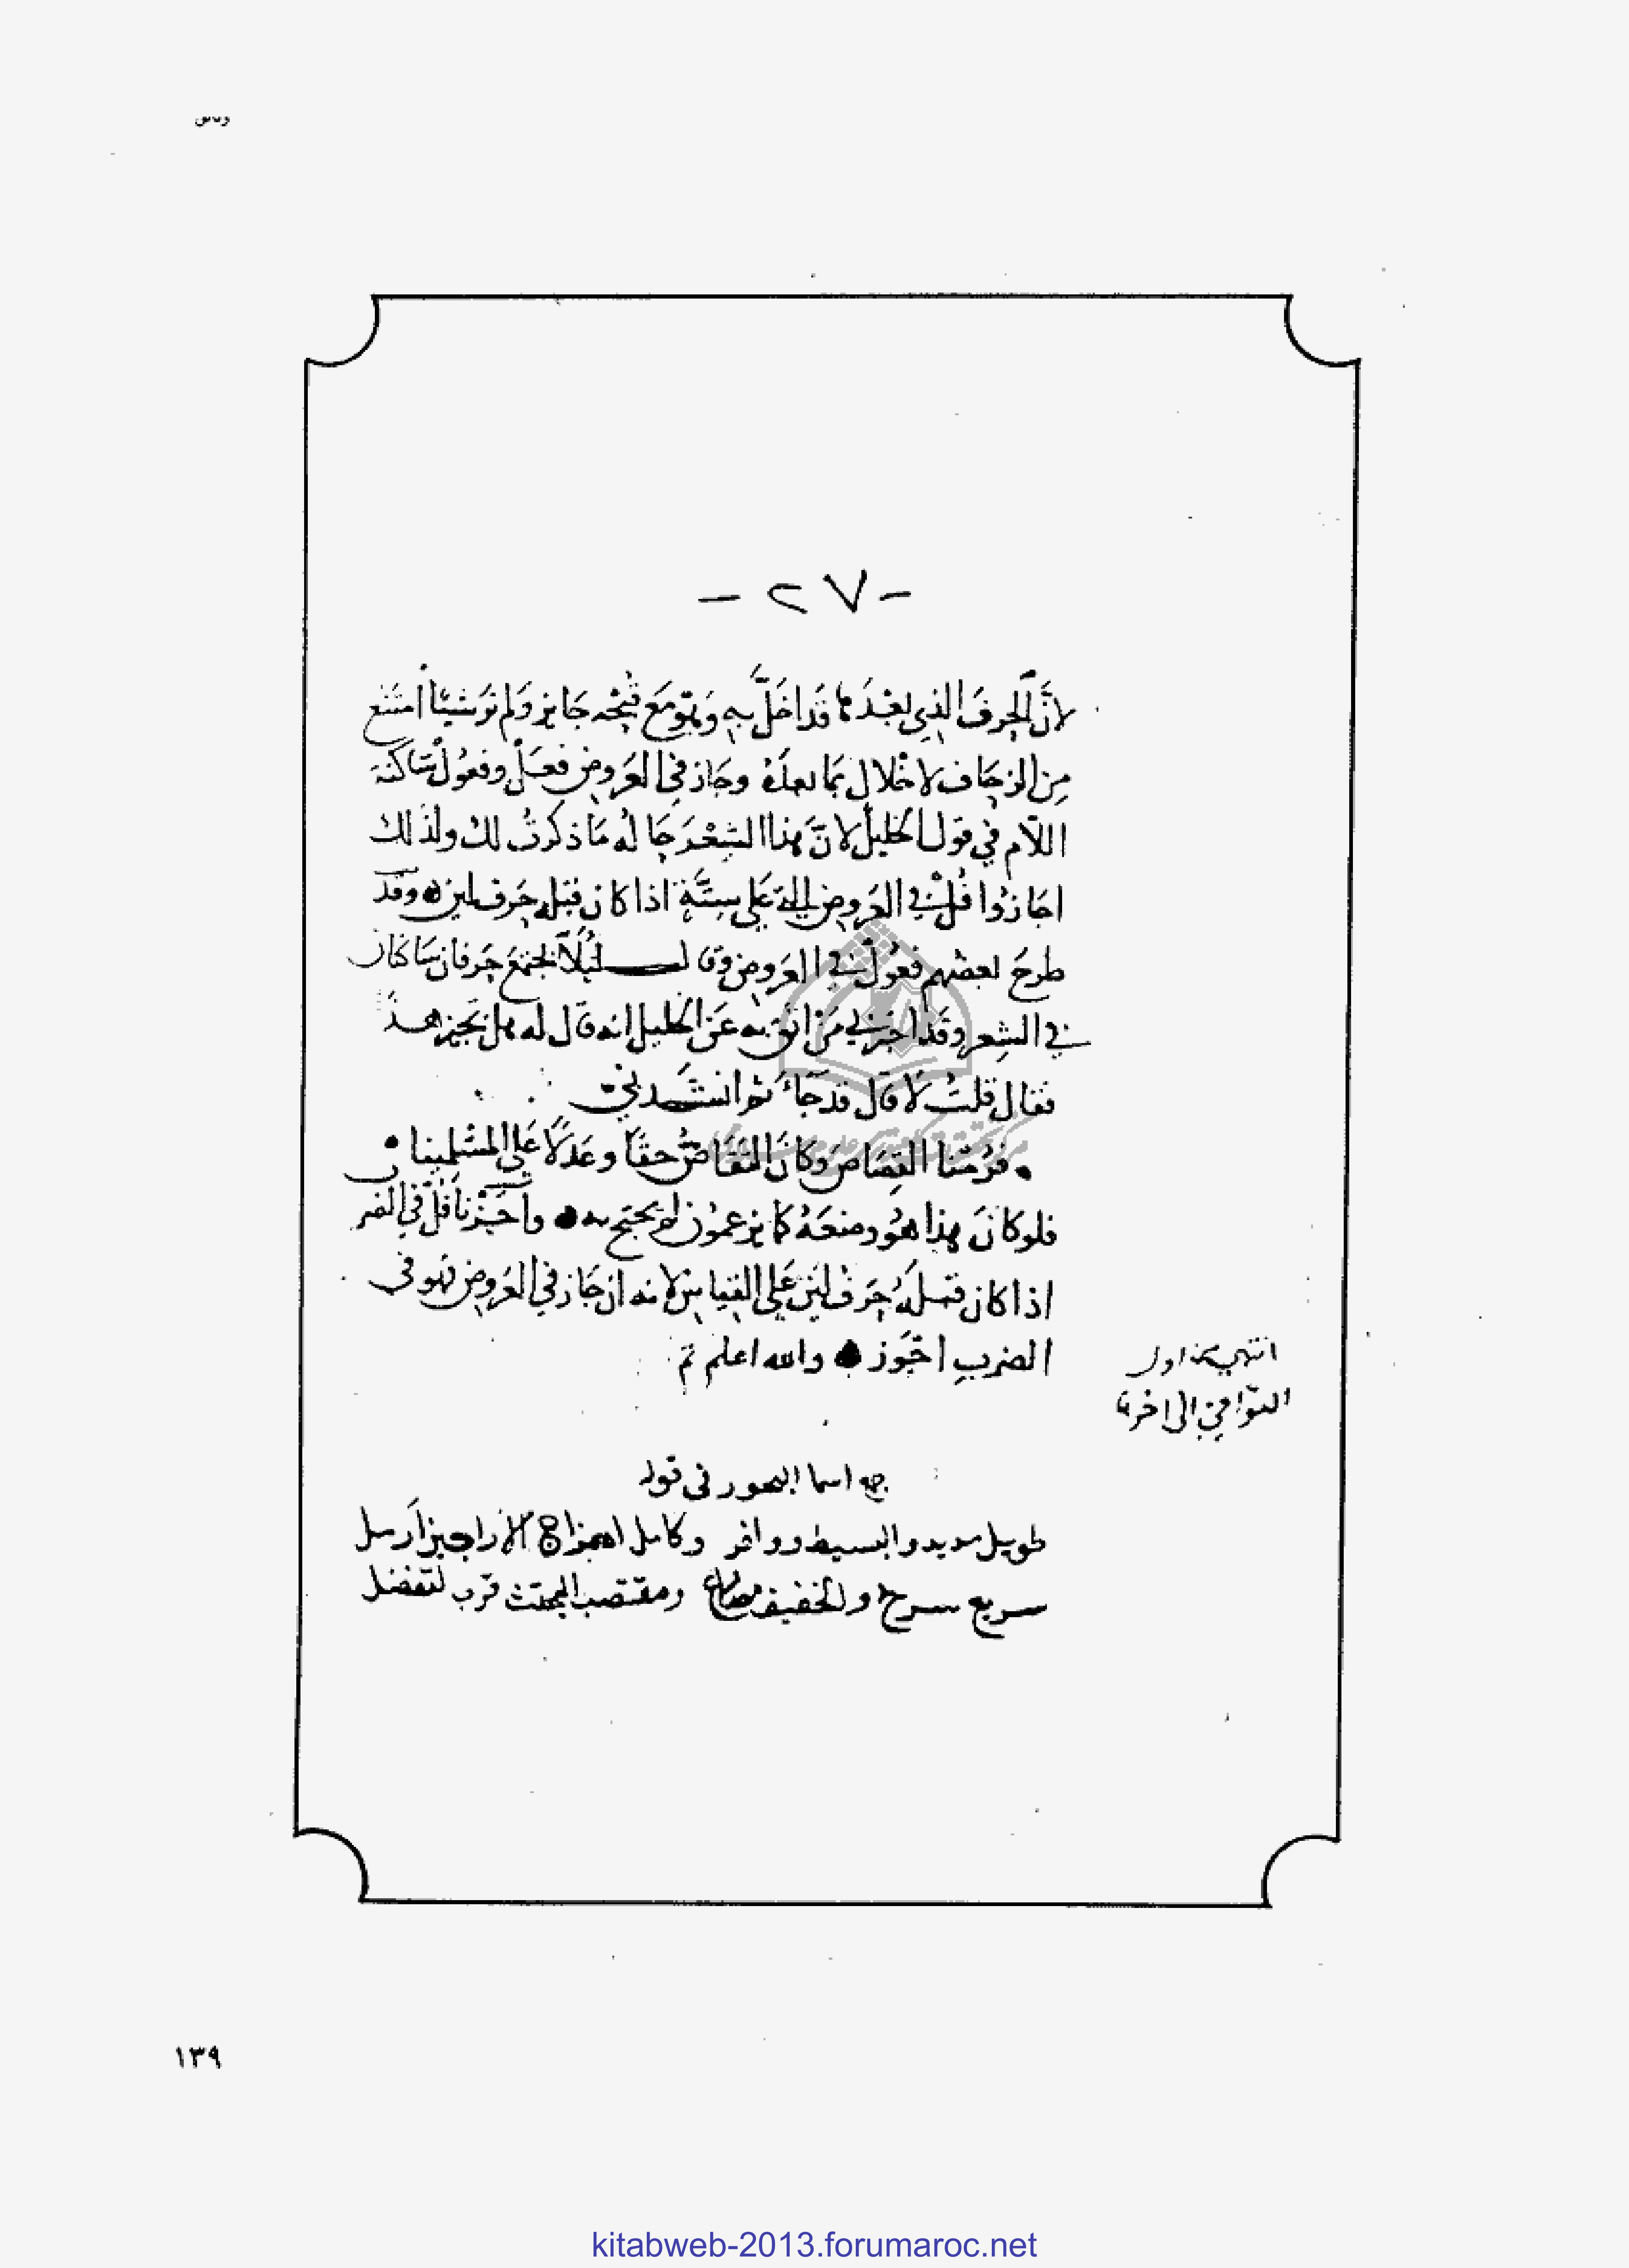 - ٢٧ -
لأنَّ الحرفَ الذي بعْدَها قَد اخلَّ به وَهوَ مَع قبْحِه جَايز وَلم نَر شيئاً امتَنَع
مِن الزحَاف لاخْلال بما بعدَهُ وجَاز في العَروض فعَلْ وفعُولْ سَاكنة
اللام في قول الخليل لانَّ هذا الشعْرَ جَا لهُ مَا ذكرتُ لك ولذلك
اجَازوا فُلْ في العَروض التي على ستَّة اذا كان قبله حَرف لين وقد
طرحَ بعضهم فعُولْ في العَروض وقال ليلاً يجتمعَ حَرفان سَاكنان
في الشعر وقَد اخبَرني مَنْ اثق به عَن الخليل انه قال له هل تجيز هذا
فقال قلتُ لا قال قد جَاءَ ثم انشدني
فرُمنا القِصَاصَ وكانَ التقَاصُّ حقًّا وعَدْلاً على المسْلمينا
فلو كانَ هذا هُو وضعَهُ كما يزعمُون لم يحتج به وأجَزْنا فُلْ في الضرب
اذا كان قبلَهُ حَرفُ لين على القياس لانه ان جَاز في العَروض فهو في
الضربِ اجْوَز والله اعلم تم
انتهى من اول
القوافي الى اخره
اسما البحور في قوله
طويل مديد والبسيط ووافر وكامل اهزاج الاراجيز أرسل
سريع سرح والخفيف مضارع ومقتضب المجتث قرب لتفضل
١٣٩
kitabweb-2013.forumaroc.net